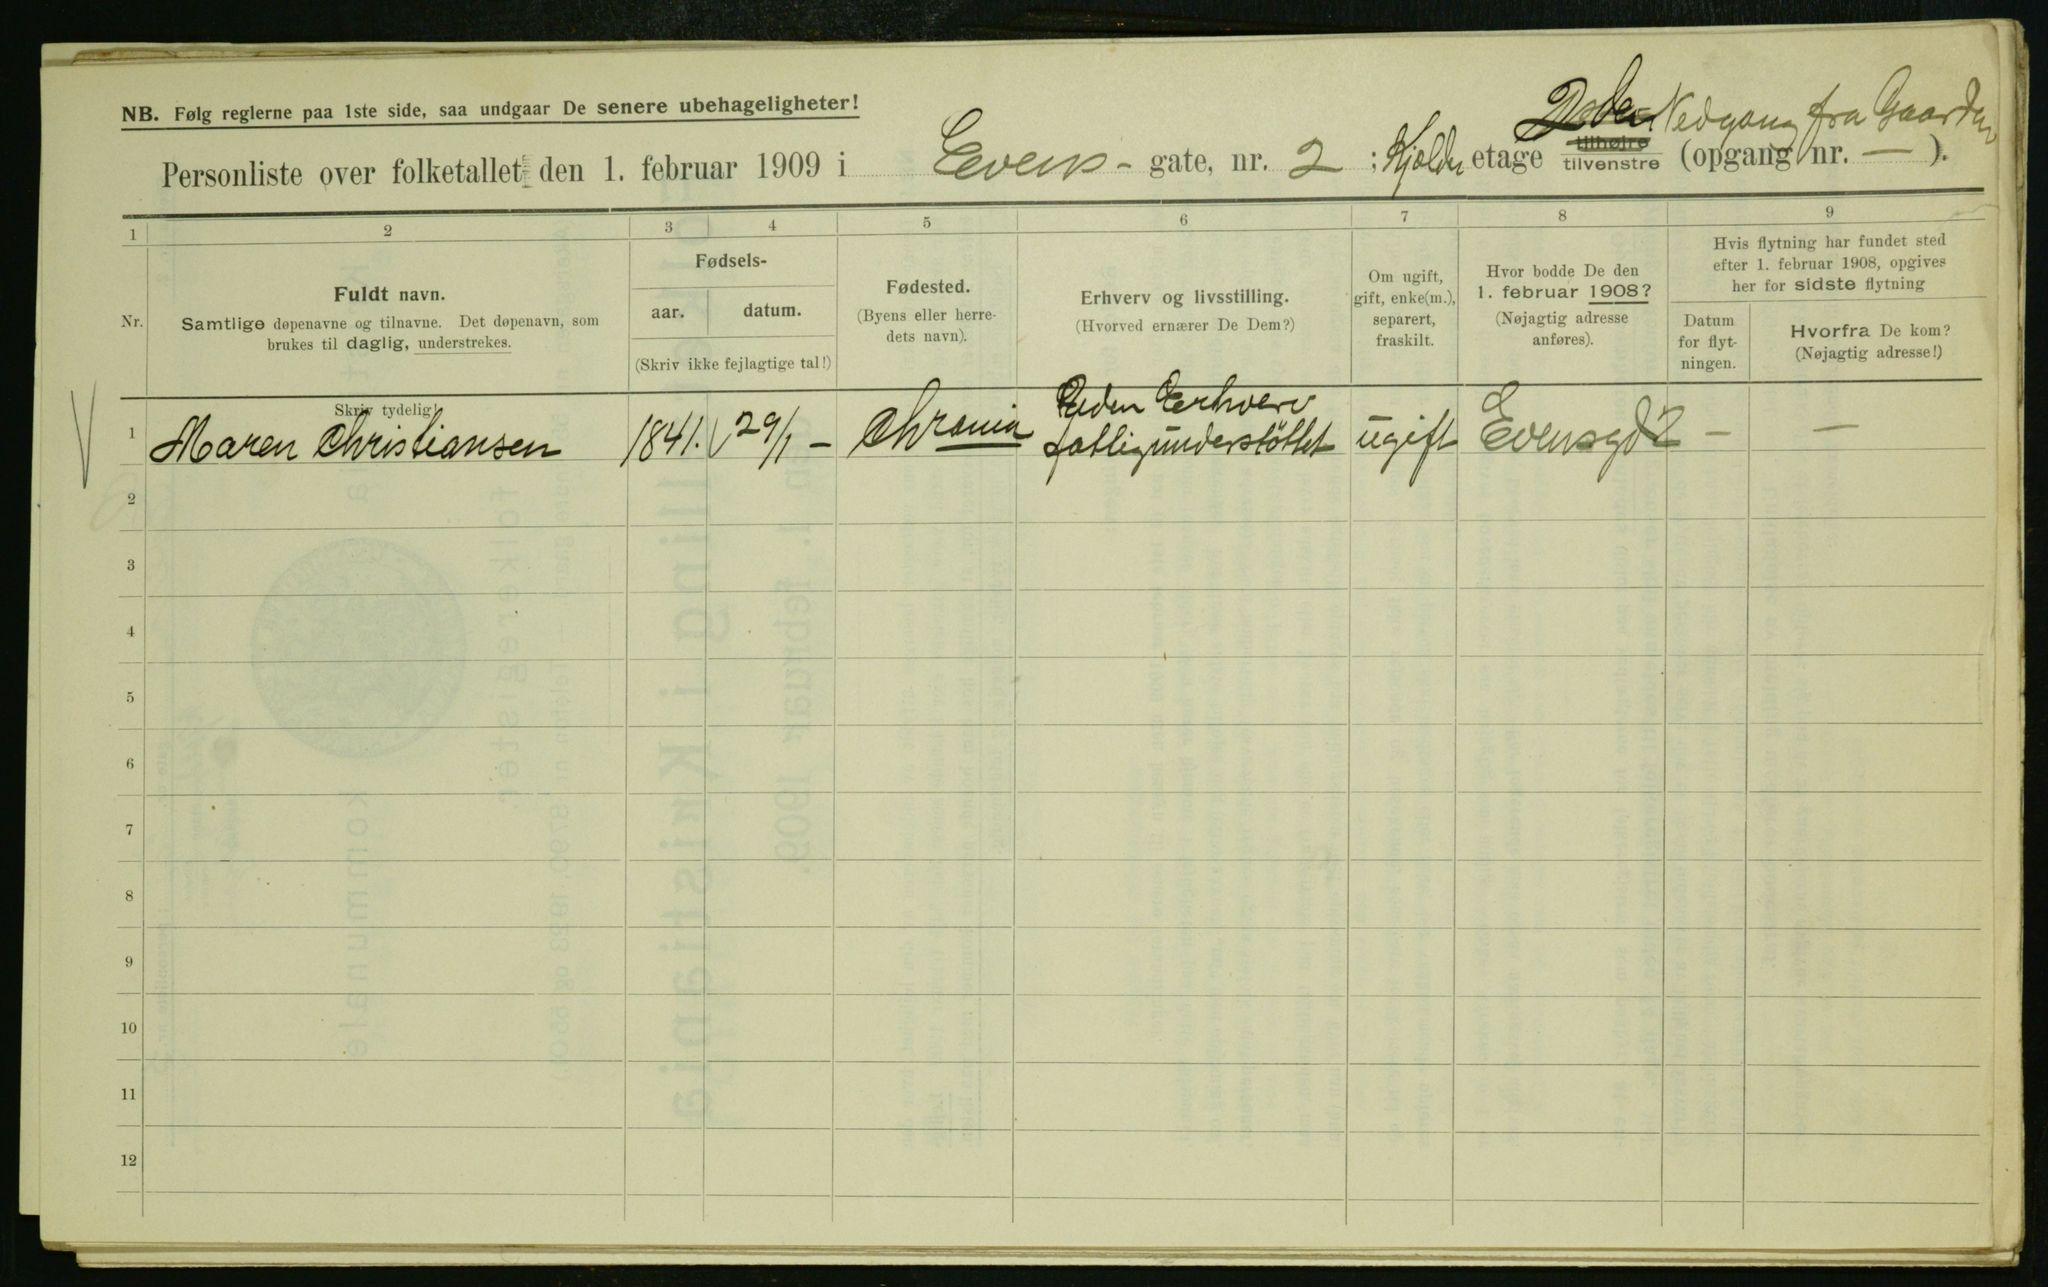 NB. Følg reglerne paa 1ste side, saa undgaar De senere ubehageligheter!
Nedgang fra Gaarden
Personliste over folketallet den 1. februar 1909 i Evens-gate, nr. 2 ; Kjelder etage tilhøire tilvenstre (opgang nr. — ).
1 2 3 4 5 6 7 8 9
Nr.
Fuldt navn.
Samtlige døpenavne og tilnavne. Det døpenavn, som
brukes til daglig, understrekes.
Fødsels-
aar. datum.
(Skriv ikke fejlagtige tal!)
Fødested.
(Byens eller herre-
dets navn).
Erhverv og livsstilling.
(Hvorved ernærer De Dem?)
Om ugift,
gift, enke(m.),
separert,
fraskilt.
Hvor bodde De den
1. februar 1908?
(Nøjagtig adresse
anføres).
Hvis flytning har fundet sted
efter 1. februar 1908, opgives
her for sidste flytning
Datum
for flyt-
ningen.
Hvorfra De kom?
(Nøjagtig adresse!)
Skriv tydelig!
1 Maren Christiansen 1841. 29/1 — Chrania Uden Erhverv
fattigunderstöttet ugift Evensgd 2 — —
2
3
4
5
6
7
8
9
10
11
12